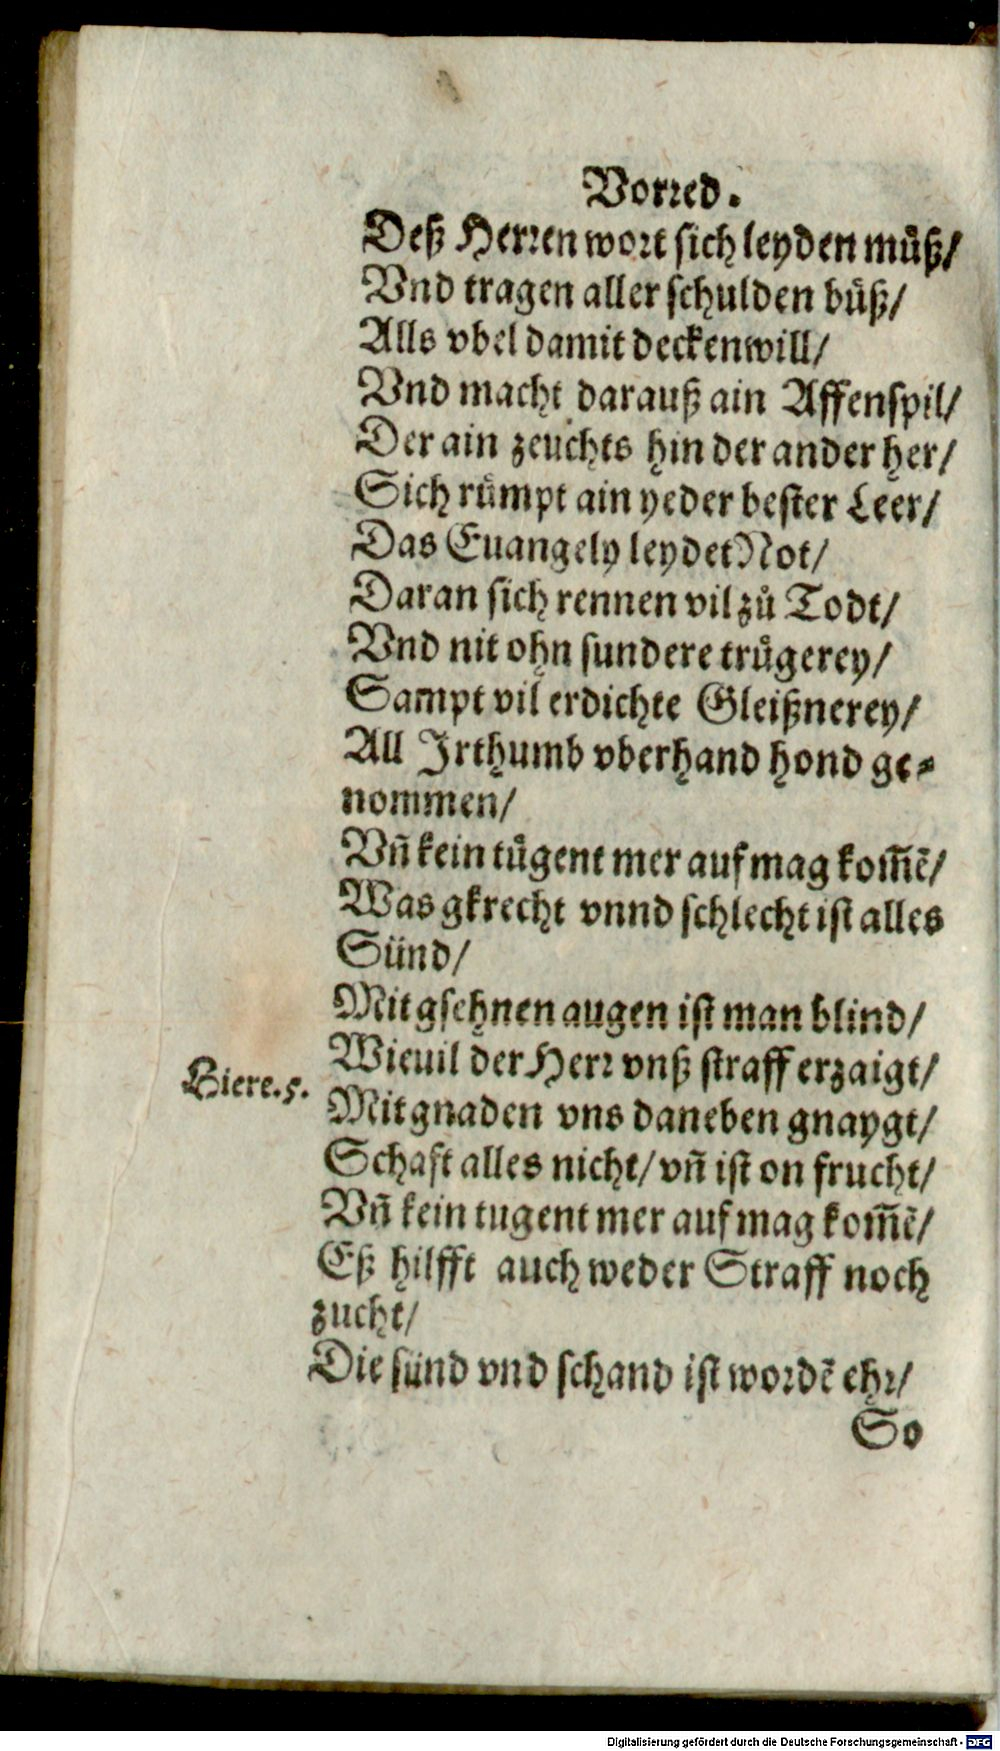 Vorred.
Deß Herren wort sich leyden můß/
Vnd tragen aller schulden bůß/
Alls vbel damit decken will/
Vnd macht darauß ain Affenspil/
Der ain zeuchts hin der ander her/
Sich růmpt ain yeder bester Leer/
Das Euangely leydet Not/
Daran sich rennen vil zů Todt/
Vnd nit ohn sundere trůgerey/
Sampt vil erdichte Gleißnerey/
All Irthumb vberhand hond ge⸗
nommen/
Vñ kein tůgent mer auf mag kom̃ẽ/
Was gkrecht vnnd schlecht ist alles
Sünd/
Mit gsehnen augen ist man blind/
Wieuil der Herr vnß straff erzaigt/
Hiere.5.
Mit gnaden vns daneben gnaygt/
Schaft alles nicht/ vñ ist on frucht/
Vñ kein tugent mer auf mag kom̃ẽ/
Eß hilfft auch weder Straff noch
zucht/
Die sünd vnd schand ist wordẽ ehr/
So
Digitalisierung gefördert durch die Deutsche Forschungsgemeinschaft - DFG